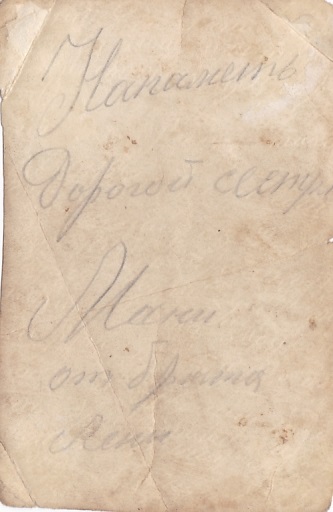 Напаметь
дорогой сестре
Мани
от брата
Лени